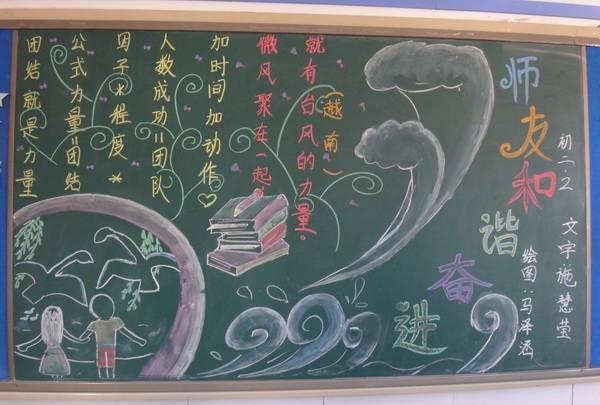 团结就是力量
公式力量=团结
因子*程度*
人数成功=团队
加时间加动作♡
微风聚在一起。
就有台风的力量。
(越南)
师友和谐奋进
初二.2 文字施慧莹
绘图:马泽丞